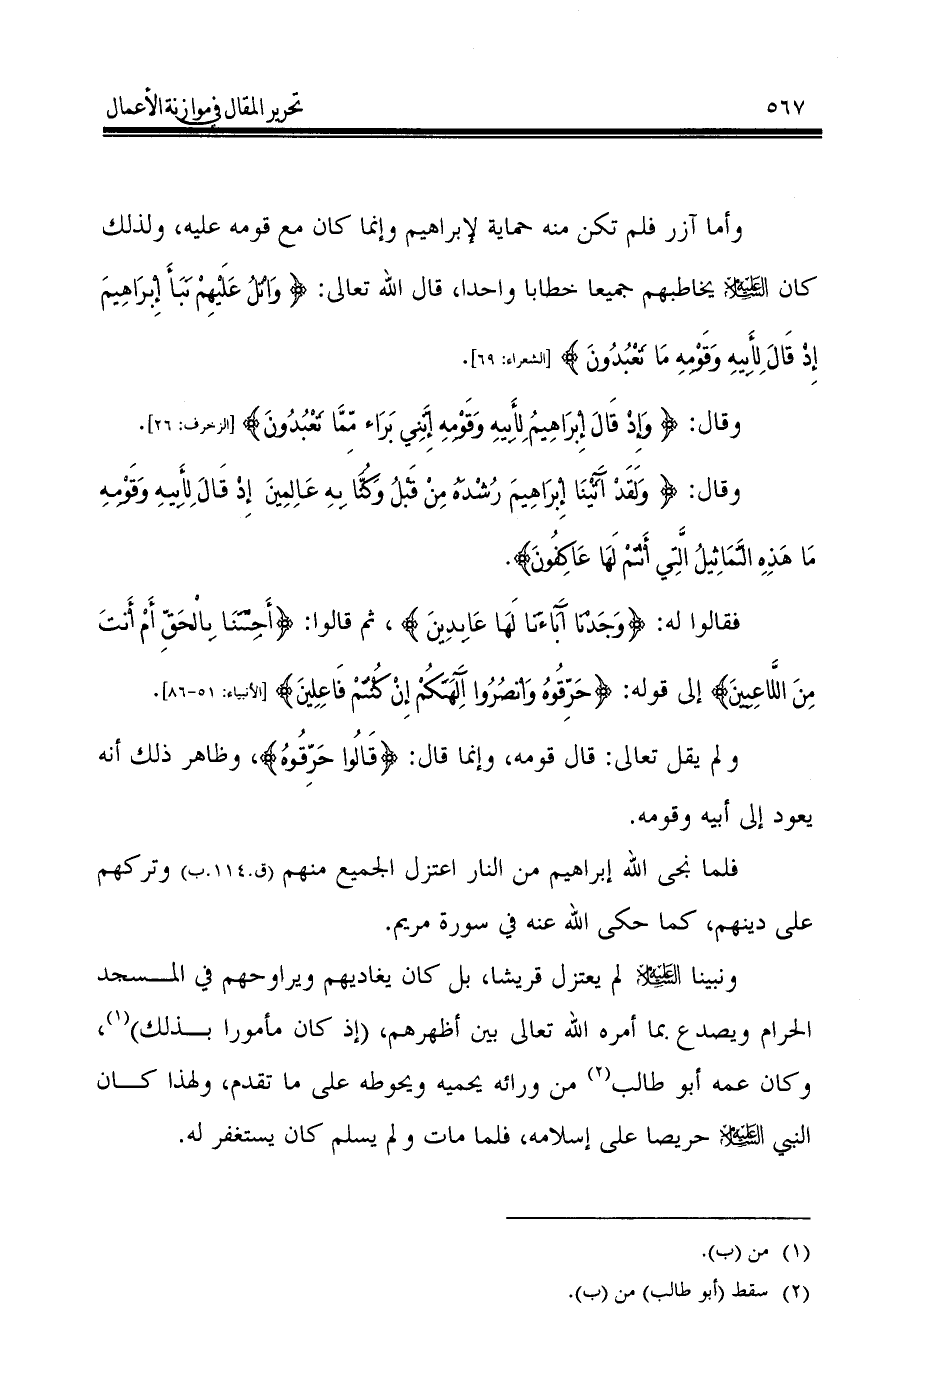 ٥٦٧ تحرير المقال في موازنة الأعمال
وأما آزر فلم تكن منه حماية لإبراهيم وإنما كان مع قومه عليه، ولذلك
كان العليه السلام يخاطبهم جميعا خطابا واحدا، قال الله تعالى: ﴿ وَاتْلُ عَلَيْهِمْ نَبَأَ إِبْرَاهِيمَ
إِذْ قَالَ لِأَبِيهِ وَقَوْمِهِ مَا تَعْبُدُونَ ﴾ [الشعراء: ٦٩].
وقال: ﴿ وَإِذْ قَالَ إِبْرَاهِيمُ لِأَبِيهِ وَقَوْمِهِ إِنَّنِي بَرَاء مِّمَّا تَعْبُدُونَ﴾ [الزخرف: ٢٦].
وقال: ﴿ وَلَقَدْ آتَيْنَا إِبْرَاهِيمَ رُشْدَهُ مِنْ قَبْلُ وَكُنَّا بِهِ عَالِمِينَ إِذْ قَالَ لِأَبِيهِ وَقَوْمِهِ
مَا هَذِهِ التَّمَاثِيلُ الَّتِي أَنْتُمْ لَهَا عَاكِفُونَ﴾.
فقالوا له: ﴿وَجَدْنَا آبَاءَنَا لَهَا عَابِدِينَ ﴾ ، ثم قالوا: ﴿أَجِئْتَنَا بِالْحَقِّ أَمْ أَنتَ
مِنَ اللَّاعِبِينَ﴾ إلى قوله: ﴿حَرِّقُوهُ وَانْصُرُوا آلِهَتَكُمْ إِنْ كُنْتُمْ فَاعِلِينَ﴾ [الأنبياء: ٥١-٨٦].
ولم يقل تعالى: قال قومه، وإنما قال: ﴿قَالُوا حَرِّقُوهُ﴾، وظاهر ذلك أنه
يعود إلى أبيه وقومه.
فلما نجى الله إبراهيم من النار اعتزل الجميع منهم (ق.١١٤.ب) وتركهم
على دينهم، كما حكى الله عنه في سورة مريم.
ونبينا العليه السلام لم يعتزل قريشا، بل كان يغاديهم ويراوحهم في المسجد
الحرام ويصدع بما أمره الله تعالى بين أظهرهم، (إذ كان مأمورا بذلك)(١)،
وكان عمه أبو طالب(٢) من ورائه يحميه ويحوطه على ما تقدم، ولهذا كان
النبي العليه السلام حريصا على إسلامه، فلما مات ولم يسلم كان يستغفر له.
(١) من (ب).
(٢) سقط (أبو طالب) من (ب).